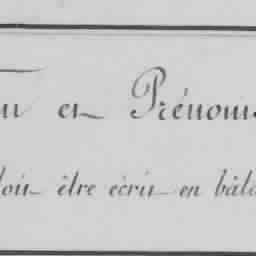 en Prénoms
doit être écrit en bâta